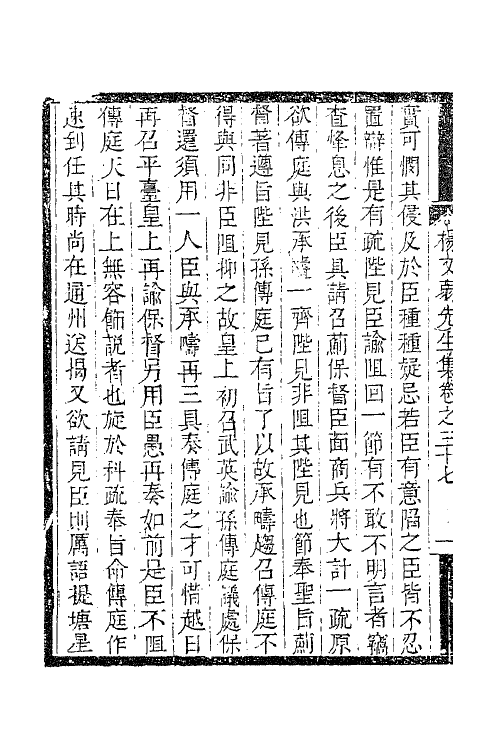 楊文弱先生集卷之三十七
實可憫其侵及於臣種種疑忌若臣有意陷之臣皆不忍
置辯惟是有疏陛見臣諭阻回一節有不敢不明言者竊
查烽息之後臣具請召薊保督臣面商兵將大計一疏原
欲傳庭與洪承疇一齊陛見非阻其陛見也節奉聖旨薊
督著遵旨陛見孫傳庭已有旨了以故承疇趨召傳庭不
得與同非臣阻抑之故皇上初召武英諭孫傳庭議處保
督還須用一人臣與承疇再三具奏傳庭之才可惜越日
再召平臺皇上再諭保督另用臣愚再奏如前是臣不阻
傳庭天日在上無容飾說者也旋於科疏奉旨命傳庭作
速到任其時尚在通州送揭又欲請見臣則厲語提塘星